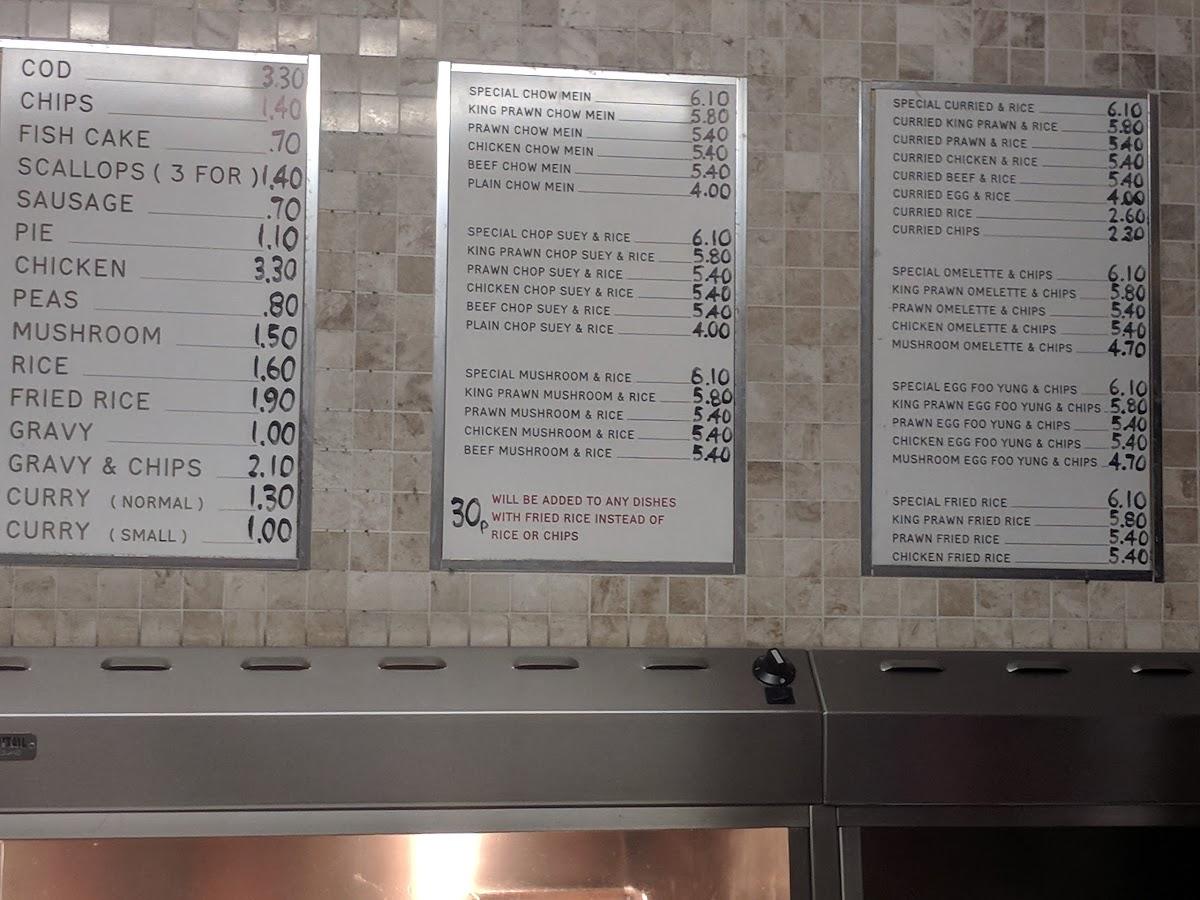 COD 3.30
CHIPS 1.40
FISH CAKE .70
SCALLOPS ( 3 FOR ) 1.40
SAUSAGE .70
PIE 1.10
CHICKEN 3.30
PEAS .80
MUSHROOM 1.50
RICE 1.60
FRIED RICE 1.90
GRAVY 1.00
GRAVY & CHIPS 2.10
CURRY ( NORMAL ) 1.30
CURRY ( SMALL ) 1.00
SPECIAL CHOW MEIN 6.10
KING PRAWN CHOW MEIN 5.80
PRAWN CHOW MEIN 5.40
CHICKEN CHOW MEIN 5.40
BEEF CHOW MEIN 5.40
PLAIN CHOW MEIN 4.00
SPECIAL CHOP SUEY & RICE 6.10
KING PRAWN CHOP SUEY & RICE 5.80
PRAWN CHOP SUEY & RICE 5.40
CHICKEN CHOP SUEY & RICE 5.40
BEEF CHOP SUEY & RICE 5.40
PLAIN CHOP SUEY & RICE 4.00
SPECIAL MUSHROOM & RICE 6.10
KING PRAWN MUSHROOM & RICE 5.80
PRAWN MUSHROOM & RICE 5.40
CHICKEN MUSHROOM & RICE 5.40
BEEF MUSHROOM & RICE 5.40
30p WILL BE ADDED TO ANY DISHES
WITH FRIED RICE INSTEAD OF
RICE OR CHIPS
SPECIAL CURRIED & RICE 6.10
CURRIED KING PRAWN & RICE 5.80
CURRIED PRAWN & RICE 5.40
CURRIED CHICKEN & RICE 5.40
CURRIED BEEF & RICE 5.40
CURRIED EGG & RICE 4.00
CURRIED RICE 2.60
CURRIED CHIPS 2.30
SPECIAL OMELETTE & CHIPS 6.10
KING PRAWN OMELETTE & CHIPS 5.80
PRAWN OMELETTE & CHIPS 5.40
CHICKEN OMELETTE & CHIPS 5.40
MUSHROOM OMELETTE & CHIPS 4.70
SPECIAL EGG FOO YUNG & CHIPS 6.10
KING PRAWN EGG FOO YUNG & CHIPS 5.80
PRAWN EGG FOO YUNG & CHIPS 5.40
CHICKEN EGG FOO YUNG & CHIPS 5.40
MUSHROOM EGG FOO YUNG & CHIPS 4.70
SPECIAL FRIED RICE 6.10
KING PRAWN FRIED RICE 5.80
PRAWN FRIED RICE 5.40
CHICKEN FRIED RICE 5.40